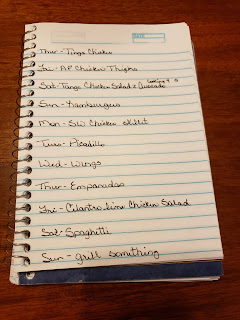 DATE
Thur - Tinga Chicken
Fri - AF Chicken Thighs
Sat - Tinga Chicken Salad & Avocado
Sun - Hamburgers
Mon - SW Chicken skillet
Tues - Picadillo
Wed - Wings
Thur - Empanadas
Fri - Cilantro lime Chicken Salad
Sat - Spaghetti
Sun - grill something